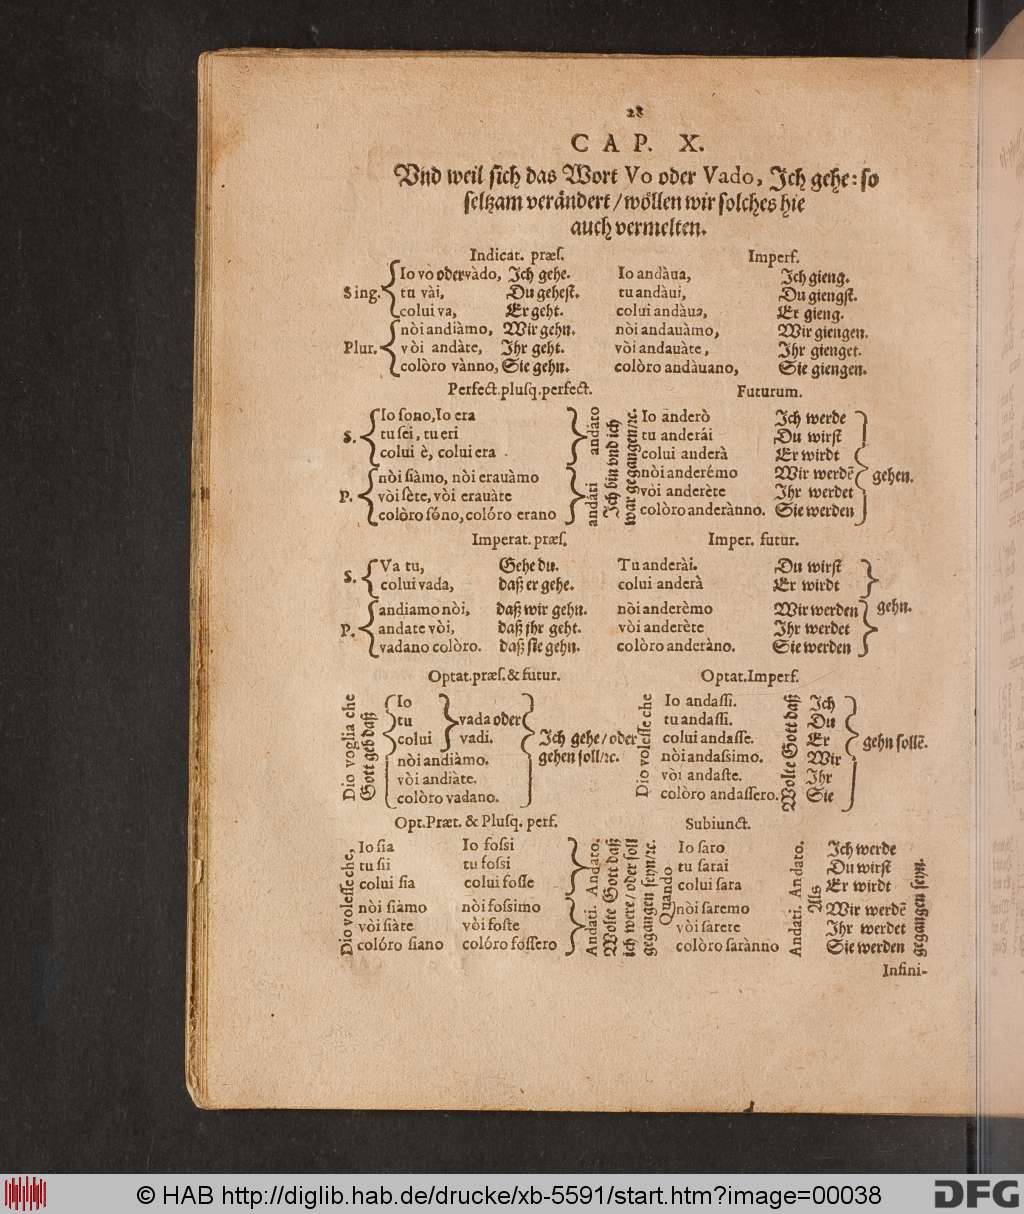 28
CAP. X.
Vnd weil sich das Wort Vo oder Vado, Ich gehe: so
seltzam verändert / wöllen wir solches hie
auch vermelten.
Indicat. præs. Imperf.
Sing. Io vo oder vàdo, Ich gehe. Io andàua, Ich gieng.
tu vài, Du gehest. tu andàui, Du giengst.
colui va, Er geht. colui andàua, Er gieng.
Plur. nòi andiàmo, Wir gehn. nòi andauàmo, Wir giengen.
vòi andàte, Ihr geht. vòi andauàte, Ihr gienget.
colòro vànno, Sie gehn. colòro andàuano, Sie giengen.
Perfect. plusq. perfect. Futurum.
S. Io sono, Io era andàto Io anderò Ich werde
tu sei, tu eri tu anderái Du wirst
colui è, colui era colui anderà Er wirdt
P. nòi siàmo, nòi erauàmo andàti nòi anderémo Wir werdē gehen.
vòi sète, vòi erauàte vòi anderète Ihr werdet
colòro sóno, colóro erano colòro anderànno. Sie werden
Ich bin vnd ich
war gegangen/ꝛc.
Imperat. præs. Imper. futur.
S. Va tu, Gehe du. Tu anderài. Du wirst
colui vada, daß er gehe. colui anderà Er wirdt
P. andiamo nòi, daß wir gehn. nòi anderèmo Wir werden gehn.
andate vòi, daß jhr geht. vòi anderète Ihr werdet
vadano colòro. daß sie gehn. colòro anderàno. Sie werden
Optat. præs. & futur. Optat. Imperf.
Dio voglia che
Gott geb daß
Io
tu vada oder
colui vadi.
nòi andiàmo.
vòi andiàte.
colòro vadano.
Ich gehe / oder
gehen soll/ꝛc.
Dio volesse che
Io andassi. Ich
tu andassi. Du
colui andasse. Er
nòi andassimo. Wir
vòi andaste. Ihr
colòro andassero. Sie
Wolte Gott daß
gehn sollē.
Opt. Præt. & Plusq. perf. Subiunct.
Dio volesse che,
Io sia Io fossi
tu sii tu fossi
colui sia colui fosse
nòi siàmo nòi fossimo
vòi siàte vòi foste
colóro siano colóro fossero
Andati. Andato.
Wolte Gott daß
ich were / oder soll
gegangen seyn/ꝛc.
Quando
Io saro Ich werde
tu sarai Du wirst
colui sara Er wirdt
nòi saremo Wir werdē
vòi sarete Ihr werdet
colòro sarànno Sie werden
Andati. Andato.
Als
gegangen seyn.
Infini-
© HAB http://diglib.hab.de/drucke/xb-5591/start.htm?image=00038
DFG